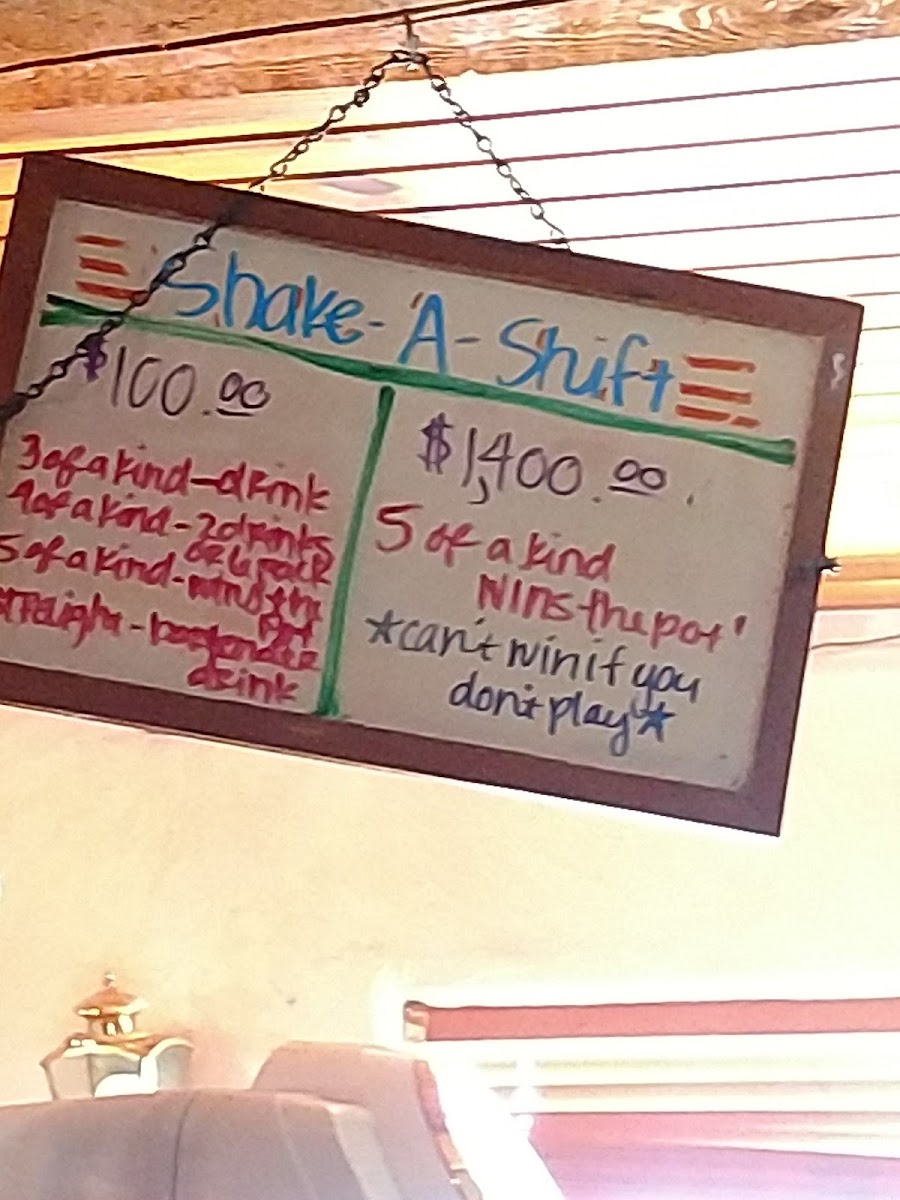 Shake-A-Shift
$100.00
3 of a kind-drink
4 of a kind-2 drinks
or 6 pack
5 of a kind-wins the
pot
straight-bartender
drink
$1,400.00.
5 of a kind
wins the pot'
*can't win if you
don't play*